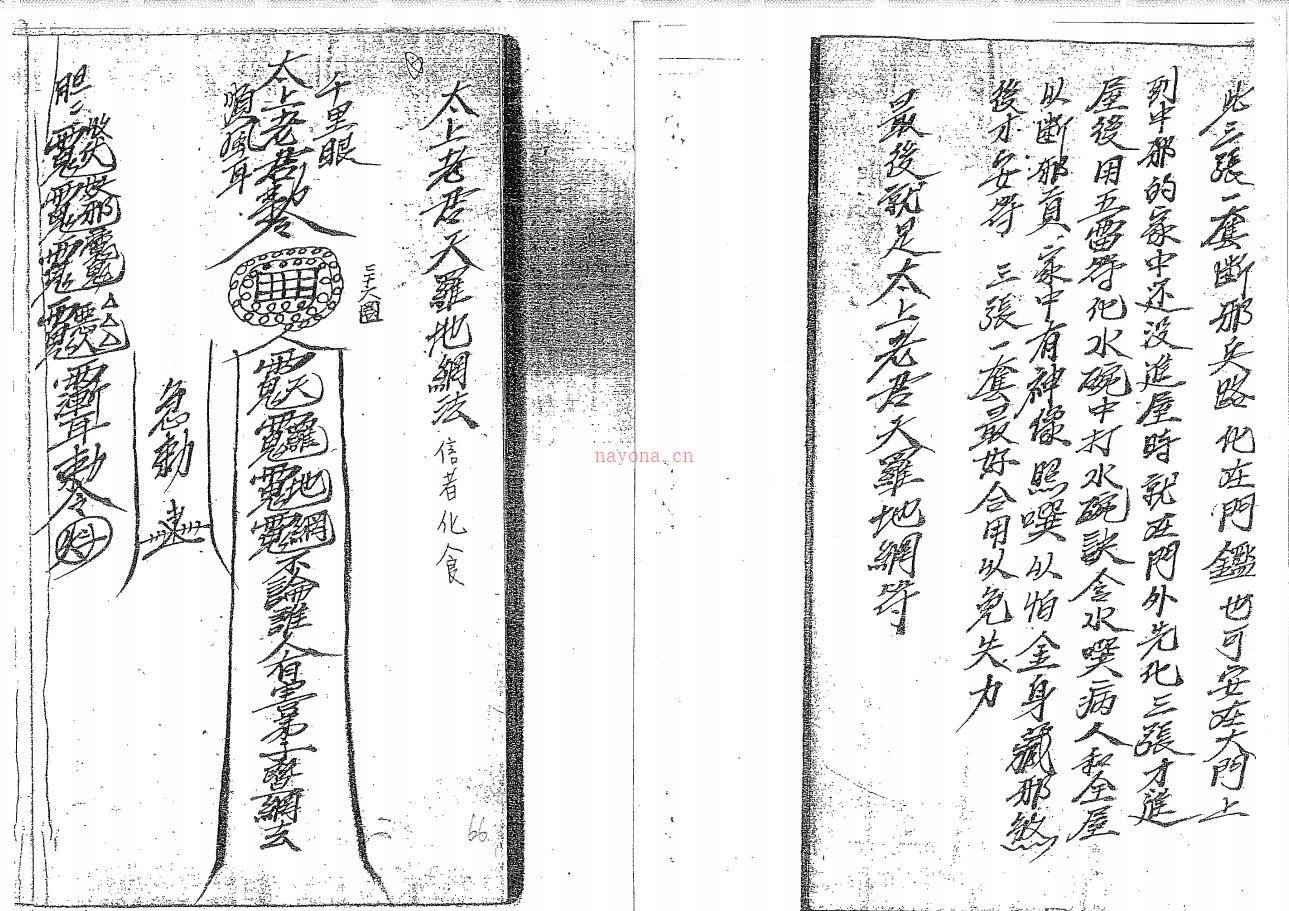 此三張一套斷邪兵路化在門鑑也可安在大門上
到中邪的家中还没進屋時就在門外先化三張才進
屋後用五雷符化水碗中打水碗訣含水噀病人和全屋
以斷邪 家中有神像照噀以怕金身藏邪煞
後才安符 三張一套最好合用以免失力
最後就是太上老君天羅地網符
太上老君天羅地網法 信者化食
千里眼
太上老君勅令
順風耳
三十六圈
天羅地網不論誰人有害弟子 網去
急勅
勅令
二
66
nayona.cn